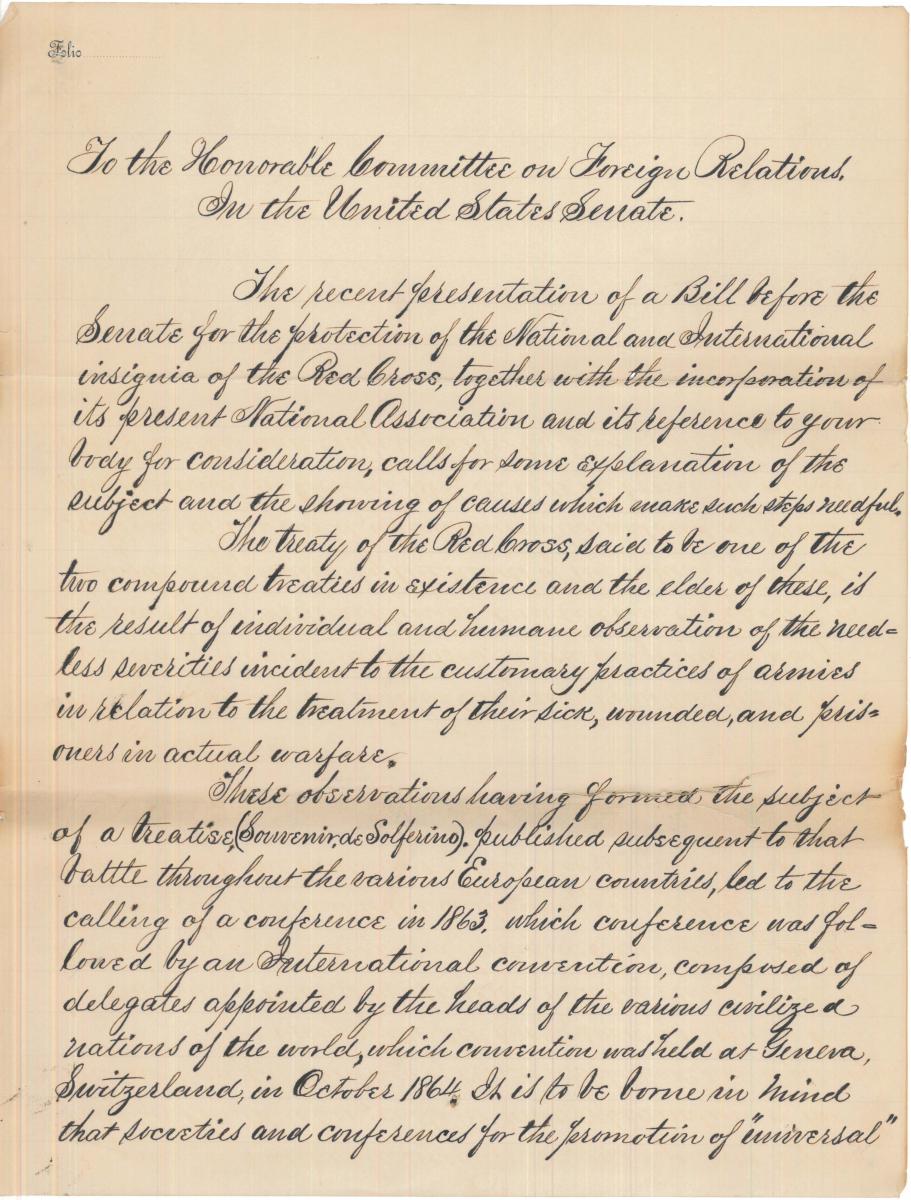 Folio
To the Honorable Committee on Foreign Relations.
In the United States Senate.
The recent presentation of a Bill before the
Senate for the protection of the National and International
insignia of the Red Cross, together with the incorporation of
its present National Association and its reference to your
body for consideration, calls for some explanation of the
subject and the showing of causes which make such steps needful.
The treaty of the Red Cross, said to be one of the
two compound treaties in existence and the elder of these, is
the result of individual and humane observation of the need=
less severities incident to the customary practices of armies
in relation to the treatment of their sick, wounded, and pris=
oners in actual warfare.
These observations having formed the subject
of a treatise, (Souvenir, de Solferino). published subsequent to that
battle throughout the various European countries, led to the
calling of a conference in 1863. which conference was fol=
lowed by an International convention, composed of
delegates appointed by the heads of the various civilized
nations of the world, which convention was held at Geneva,
Switzerland, in October 1864. It is to be borne in mind
that societies and conferences for the promotion of "universal"